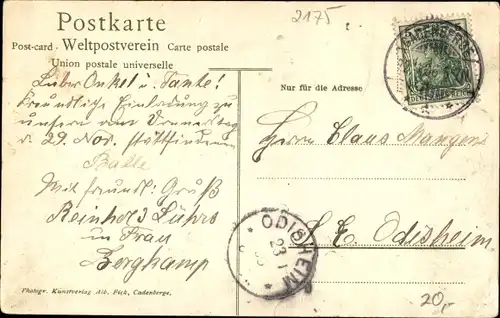 Postkarte
Post-card · Weltpostverein Carte postale
Union postale universelle
2175
CADENBERGE
DEUTSCHES REICH
Nur für die Adresse
Lieber Onkel u. Tante!
Freundliche Einladung zu
unserm am Donnerstag
d. 29. Nov. stattfindenden
Balle
Mit freundl. Gruß
Reinhold Lührs
u. Frau
Berghamp
Herrn Claus Mangels
Odisheim
ODISHEIM
23
20,-
Photogr. Kunstverlag Alb. Fick, Cadenberge.